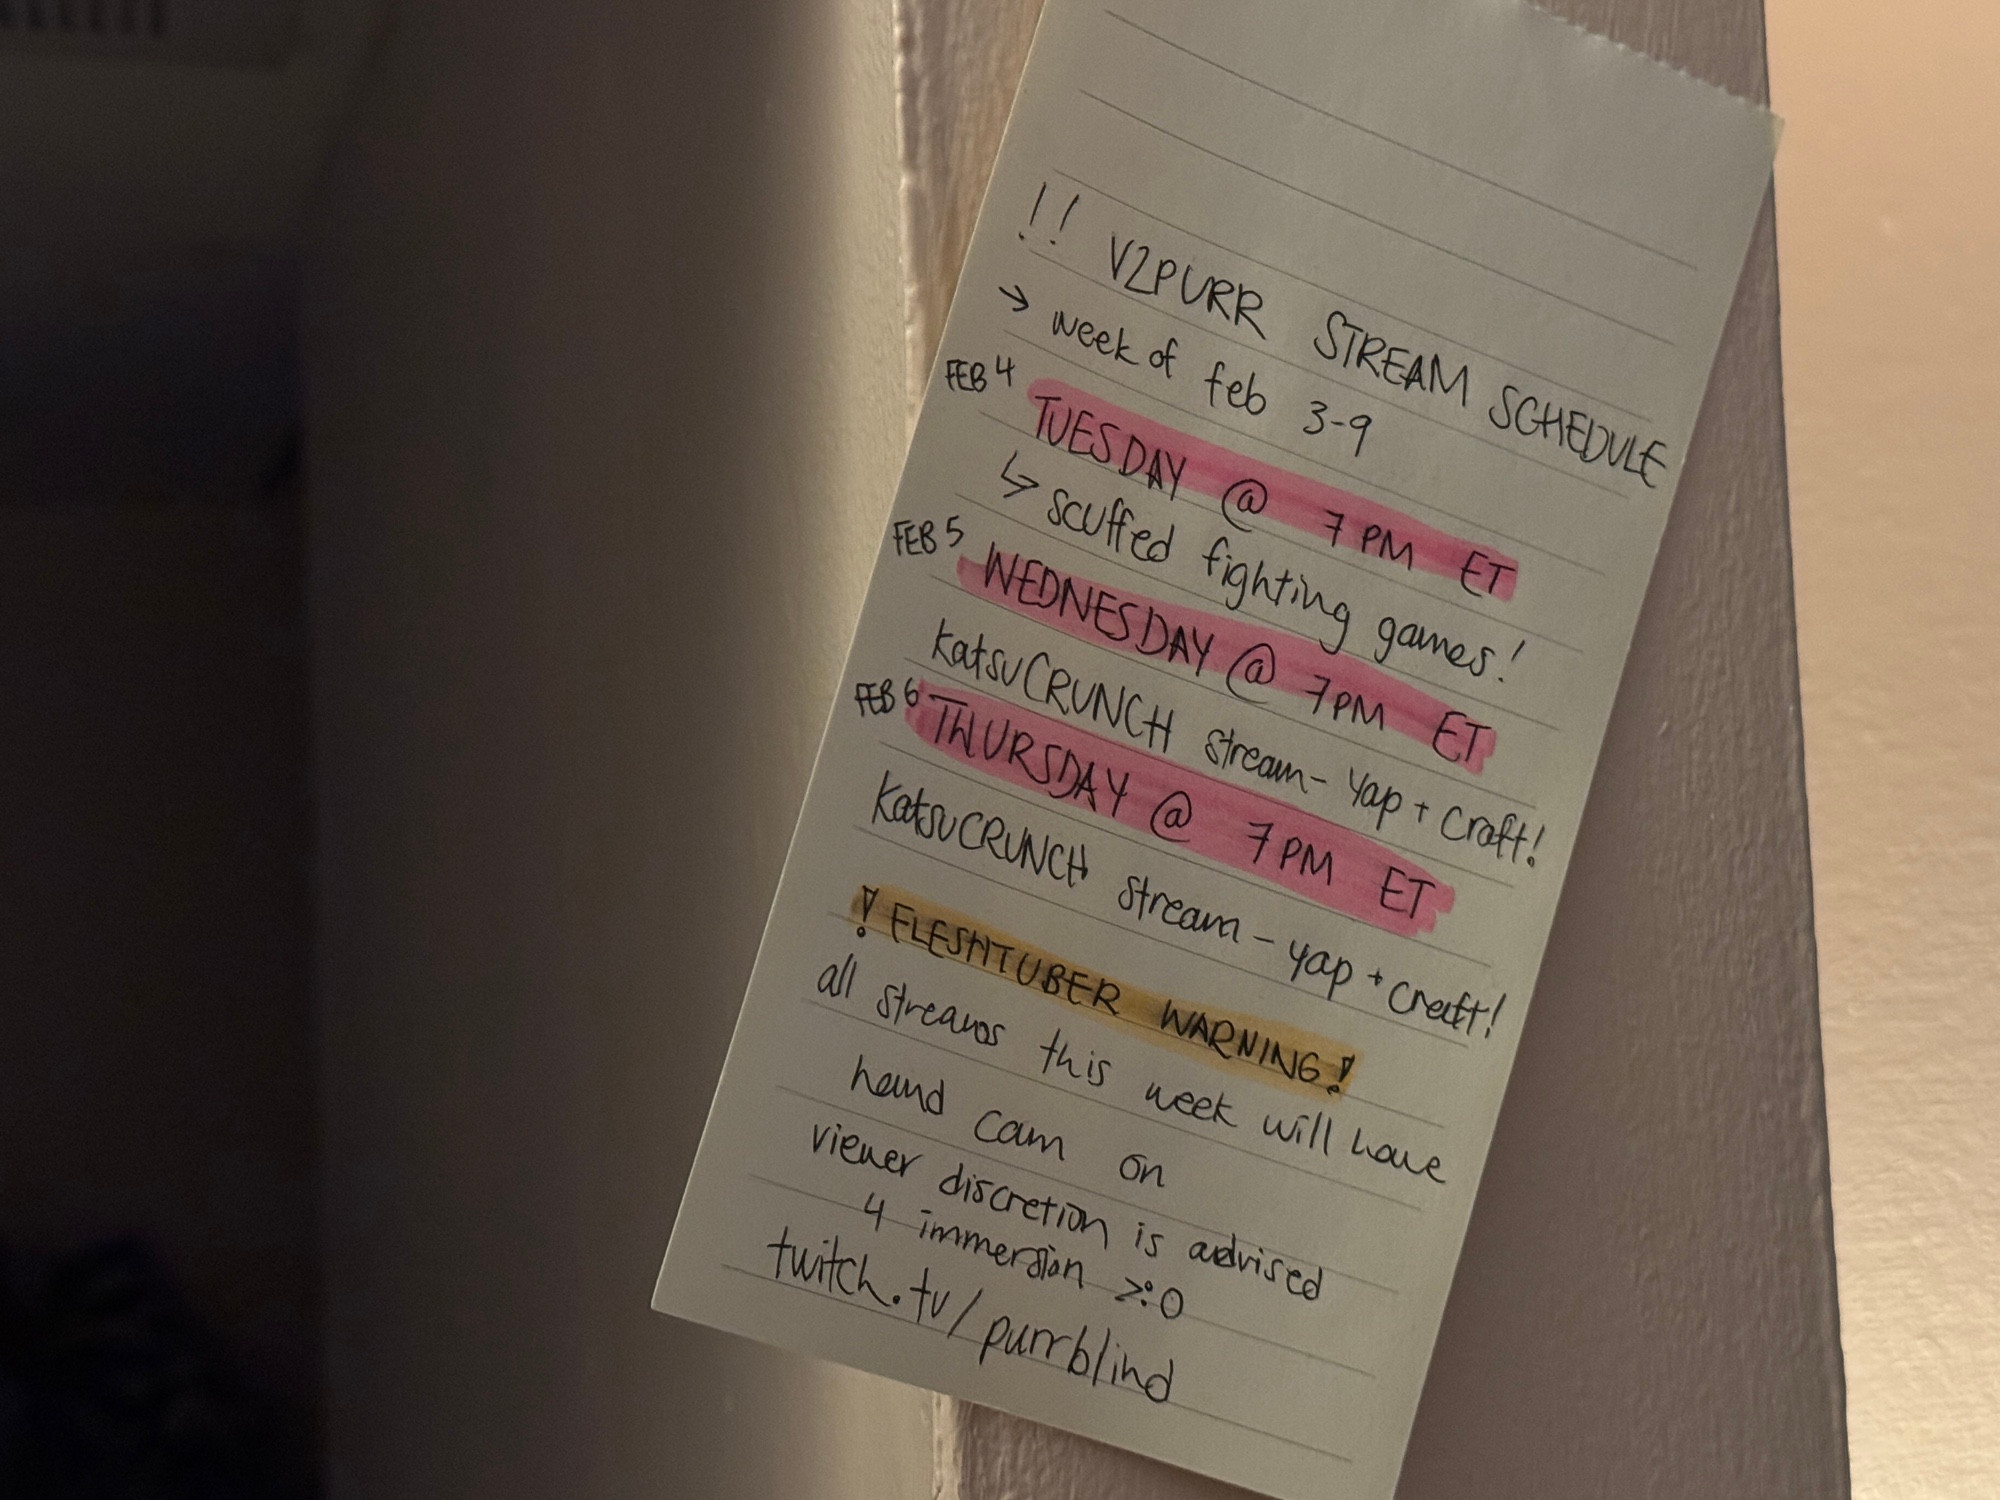 !! V2PURR STREAM SCHEDULE
→ week of feb 3-9
FEB 4 TUESDAY @ 7 PM ET
↳ scuffed fighting games!
FEB 5 WEDNESDAY @ 7PM ET
katsuCRUNCH stream- yap + craft!
FEB 6 THURSDAY @ 7PM ET
katsuCRUNCH stream - yap + craft!
! FLESHTUBER WARNING!
all streams this week will have
hand cam on
viewer discretion is advised
4 immersion >:O
twitch.tv/purrblind